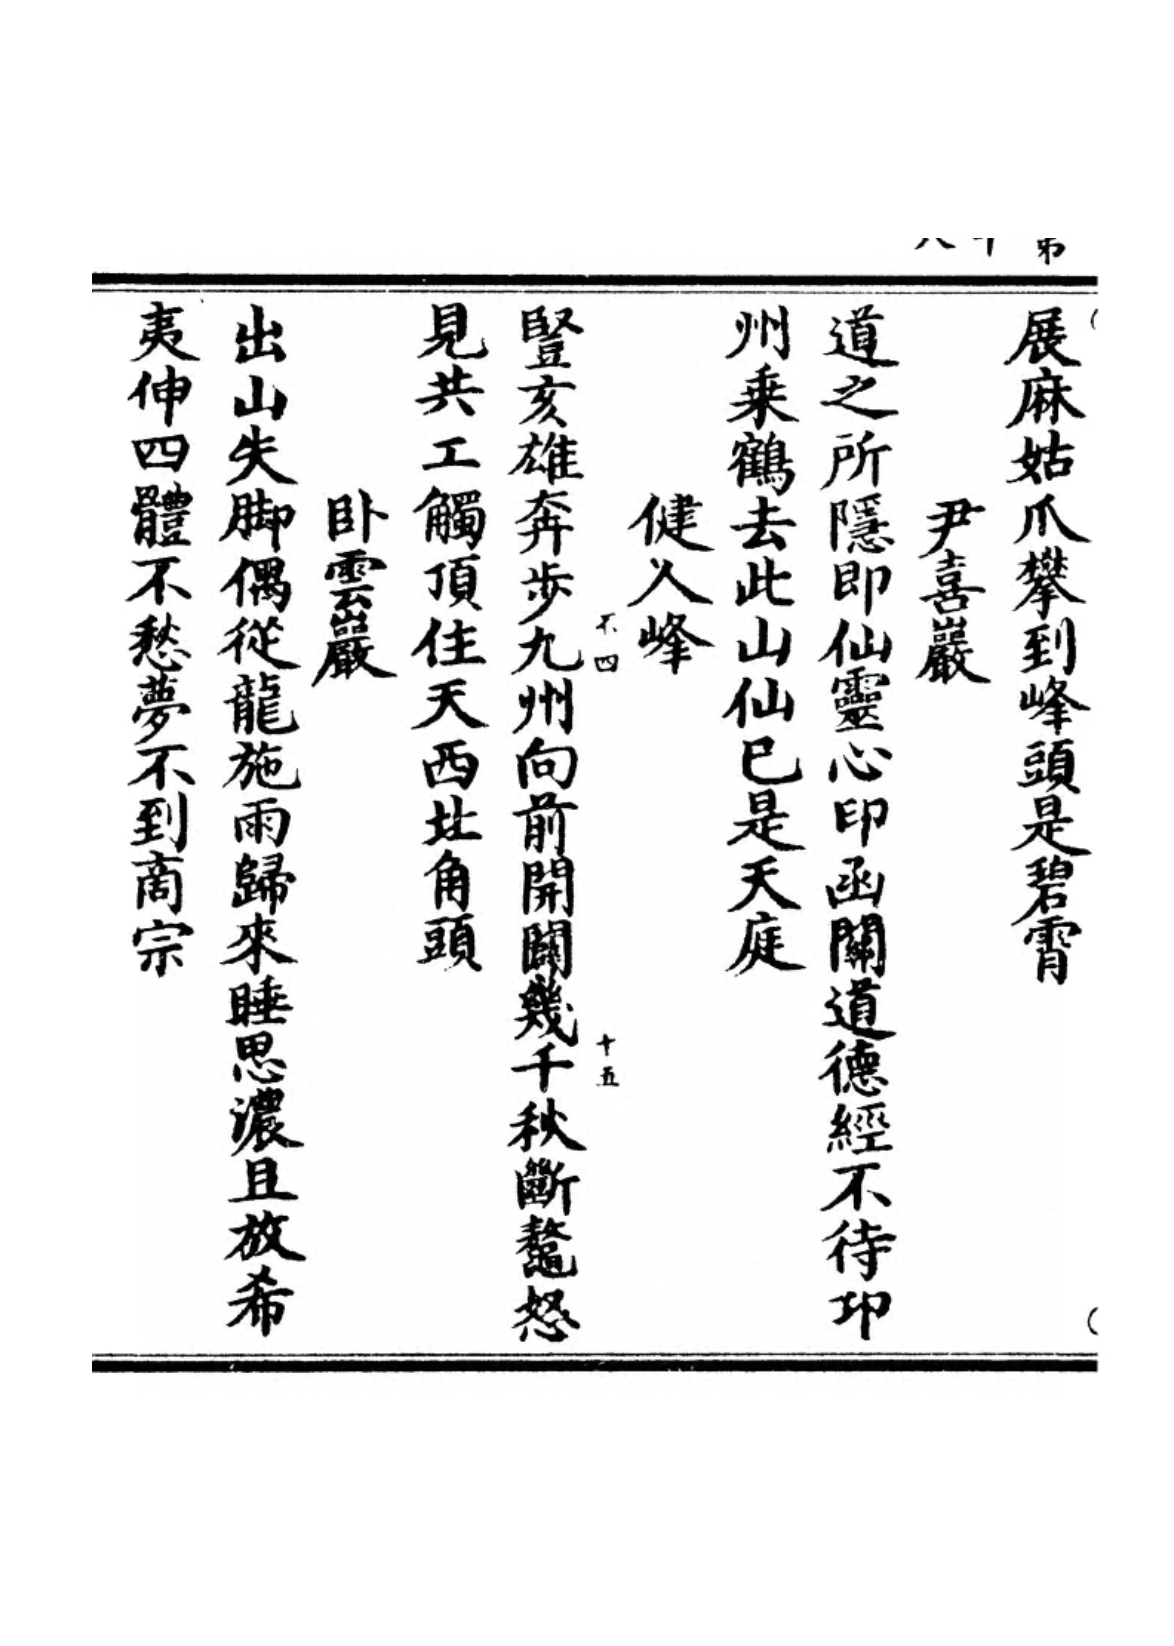 展麻姑爪攀到峰頭是碧霄
尹喜巖
道之所隱即仙靈心印函關道德經不待卭
州乗鶴去此山仙已是天庭
健人峰
不四
十五
豎亥雄奔步九州向前開闢幾千秋斷鼇怒
見共工觸頂住天西北角頭
卧雲巖
出山失脚偶從龍施雨歸來睡思濃且放希
夷伸四體不愁夢不到商宗